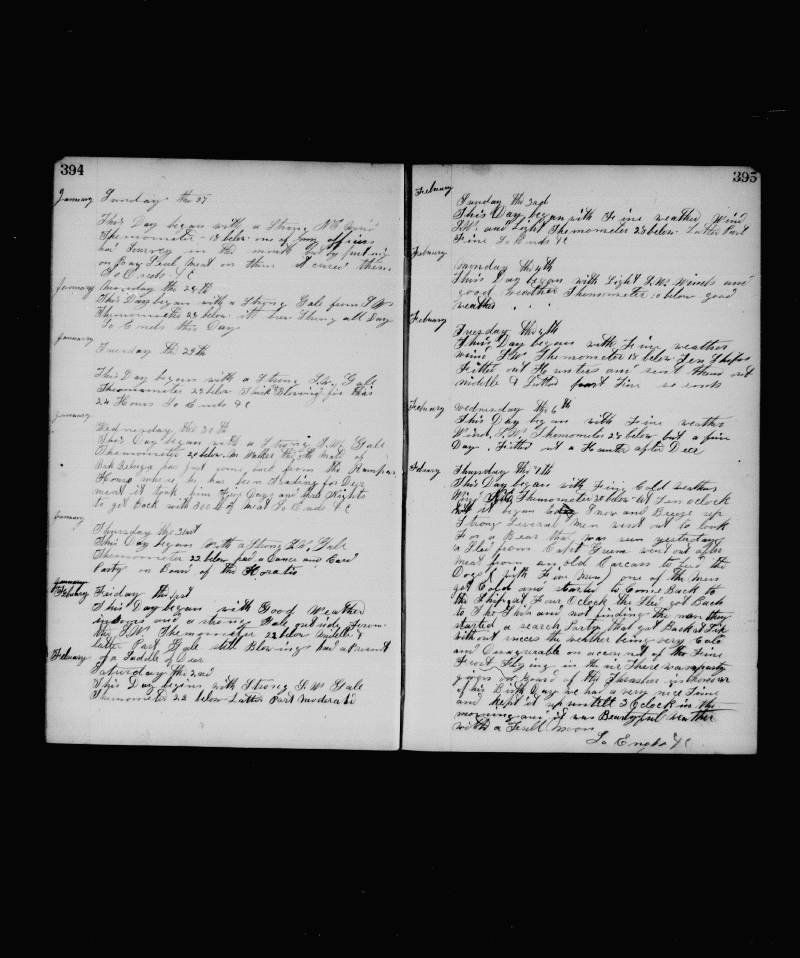 394
January Sunday the 27
This Day began with a Strong NE Wind
Thermometer -18 below one of my officers
had Scurvey in the mouth but by putting
on Raw Seal meat on them it cured them
So Ends &c
January Monday the 28th
This Day began with a Strong Gale from S W
Thermometer 28 below it blew Strong all Day
So Ends this Day
January
Tuesday the 29th
This Day began with a Strong S.W. Gale
Thermometer 23 below Thick Blowing for this
24 Hours So Ends &c
January
Wednesday the 30th
This Day began with a Strong S.W. Gale
Thermometer 21 below Mr Walker the 4th mate of
Bark Beluga has just come back from the
House where he has been Trading for Deer
meat it took him Days and Nights
to get Back with of meat So Ends &c
January
Thursday the 31st
This Day began with a Strong S.W. Gale
Thermometer 22 below had a Dance and Card
Party on Board of the Horatio
January
February Friday the 1st
This Day began with Good Weather
indoors and a strong Gale outside from
the S.W. Thermometer 22 below middle &
latter Part Gale still Blowing had a Present
of a Saddle of Deer
February
Saturday the 2nd
This Day begins with Strong S.W. Gale
Thermometer 22 below Latter Part Moderated
395
February
Sunday the 3rd
This Day began with Fine weather Wind
S.W. and Light Thermometer 28 below Latter Part
Fine So Ends &c
February
Monday the 4th
This Day began with Light S.W. Winds and
good weather Thermometer 10 below good
weather
February
Tuesday the 5th
This Day began with Fine weather
wind S.W. Thermometer 18 below Ships
Fitted out Hunters and sent them out
middle & Latter part Fine so ends
February Wednesday the 6th
This Day began with Fine weather
Wind S.W. Thermometer 28 below but a fine
Day. Fitted out a Hunter after Deer
February Thursday the 7th
This Day began with Fine Cold weather
Thermometer 28 below at Ten oclock
it began to Snow and Breeze up
Strong Several men went out to look
For a Bear that was seen yesterday
a Sled from Capt Green went out after
meat from an old Carcass to feed the
Dogs (with Five Men) one of the men
got Cold and started to Come Back to
the Ship at Four Oclock the Sled got Back
to the Ship and not finding the man they
started a search Party that got Back at Six
without success the weather being very Cold
and on account of the Fine
Frost flying in the air There was a party
given on Board of the Thrasher in honour
of his Birth Day we had a very nice Time
and kept it up untill 2 Oclock in the
morning and it was Beautyful weather
with a Full Moon
So Ends &c